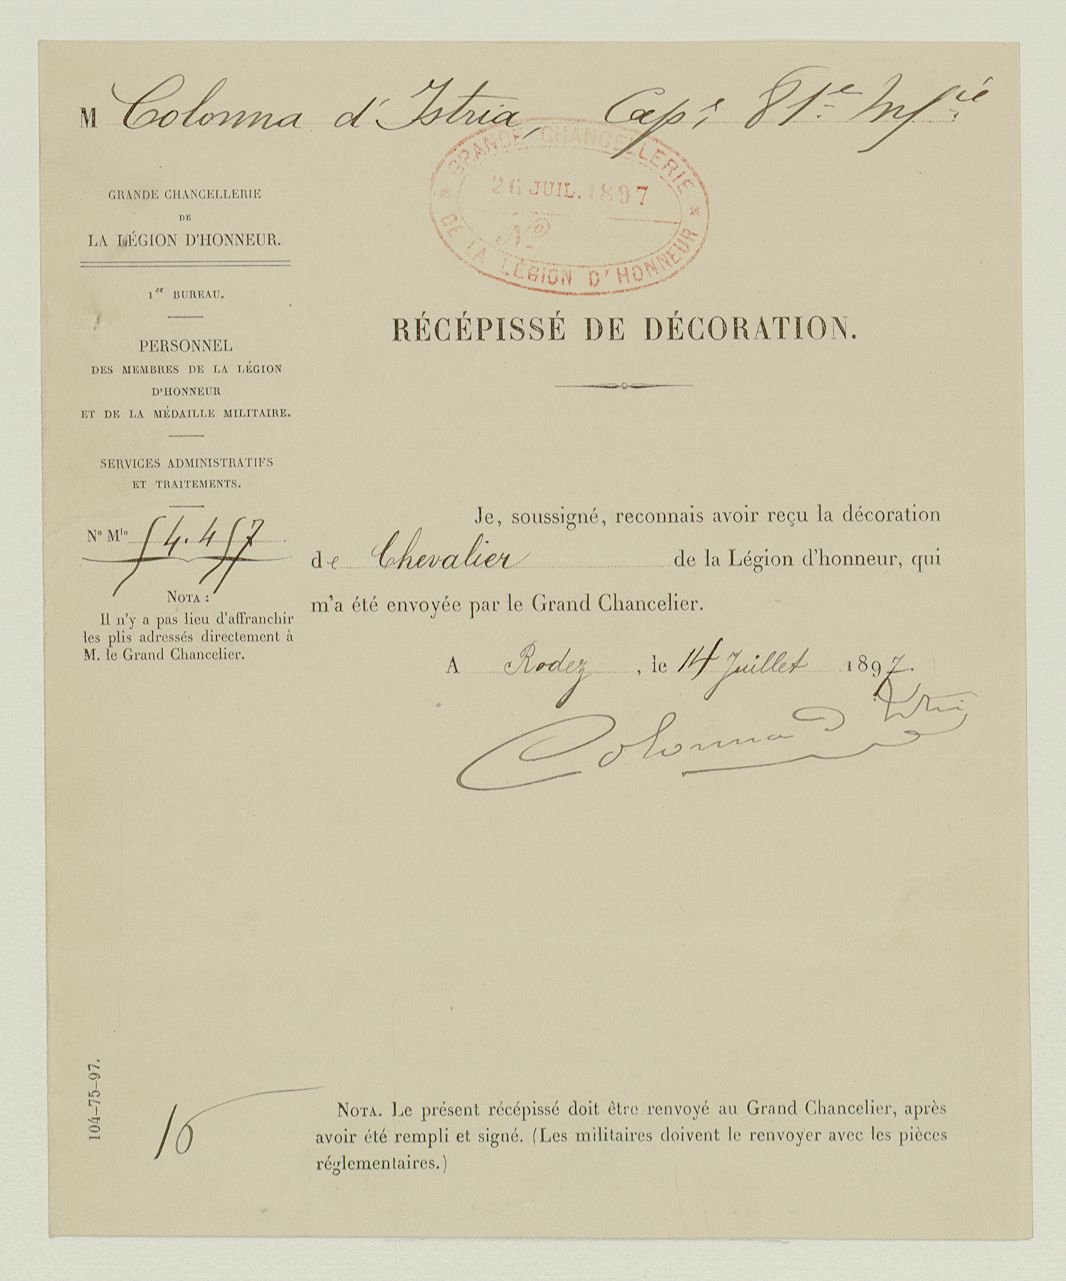 M Colonna d'Istria, Cap.e 81.e Inf.ie
GRANDE CHANCELLERIE
DE LA LÉGION D'HONNEUR
26 JUIL. 1897
No
GRANDE CHANCELLERIE
DE
LA LÉGION D'HONNEUR.
1er BUREAU.
PERSONNEL
DES MEMBRES DE LA LÉGION
D'HONNEUR
ET DE LA MÉDAILLE MILITAIRE.
SERVICES ADMINISTRATIFS
ET TRAITEMENTS.
No Mle 54.457
NOTA :
Il n'y a pas lieu d'affranchir
les plis adressés directement à
M. le Grand Chancelier.
RÉCÉPISSÉ DE DÉCORATION.
Je, soussigné, reconnais avoir reçu la décoration
de Chevalier de la Légion d'honneur, qui
m'a été envoyée par le Grand Chancelier.
A Rodez, le 14 Juillet 1897.
Colonna d'Istria
104-75-97.
16
NOTA. Le présent récépissé doit être renvoyé au Grand Chancelier, après
avoir été rempli et signé. (Les militaires doivent le renvoyer avec les pièces
réglementaires.)